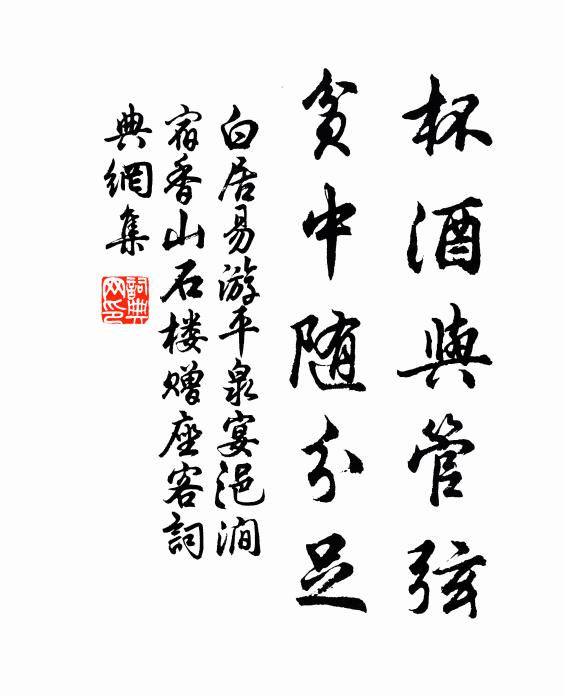 杯酒與管弦
貧中随分足
白居易游平泉宴浥澗
宿香山石楼贈座客詞
典網集
詞典网印